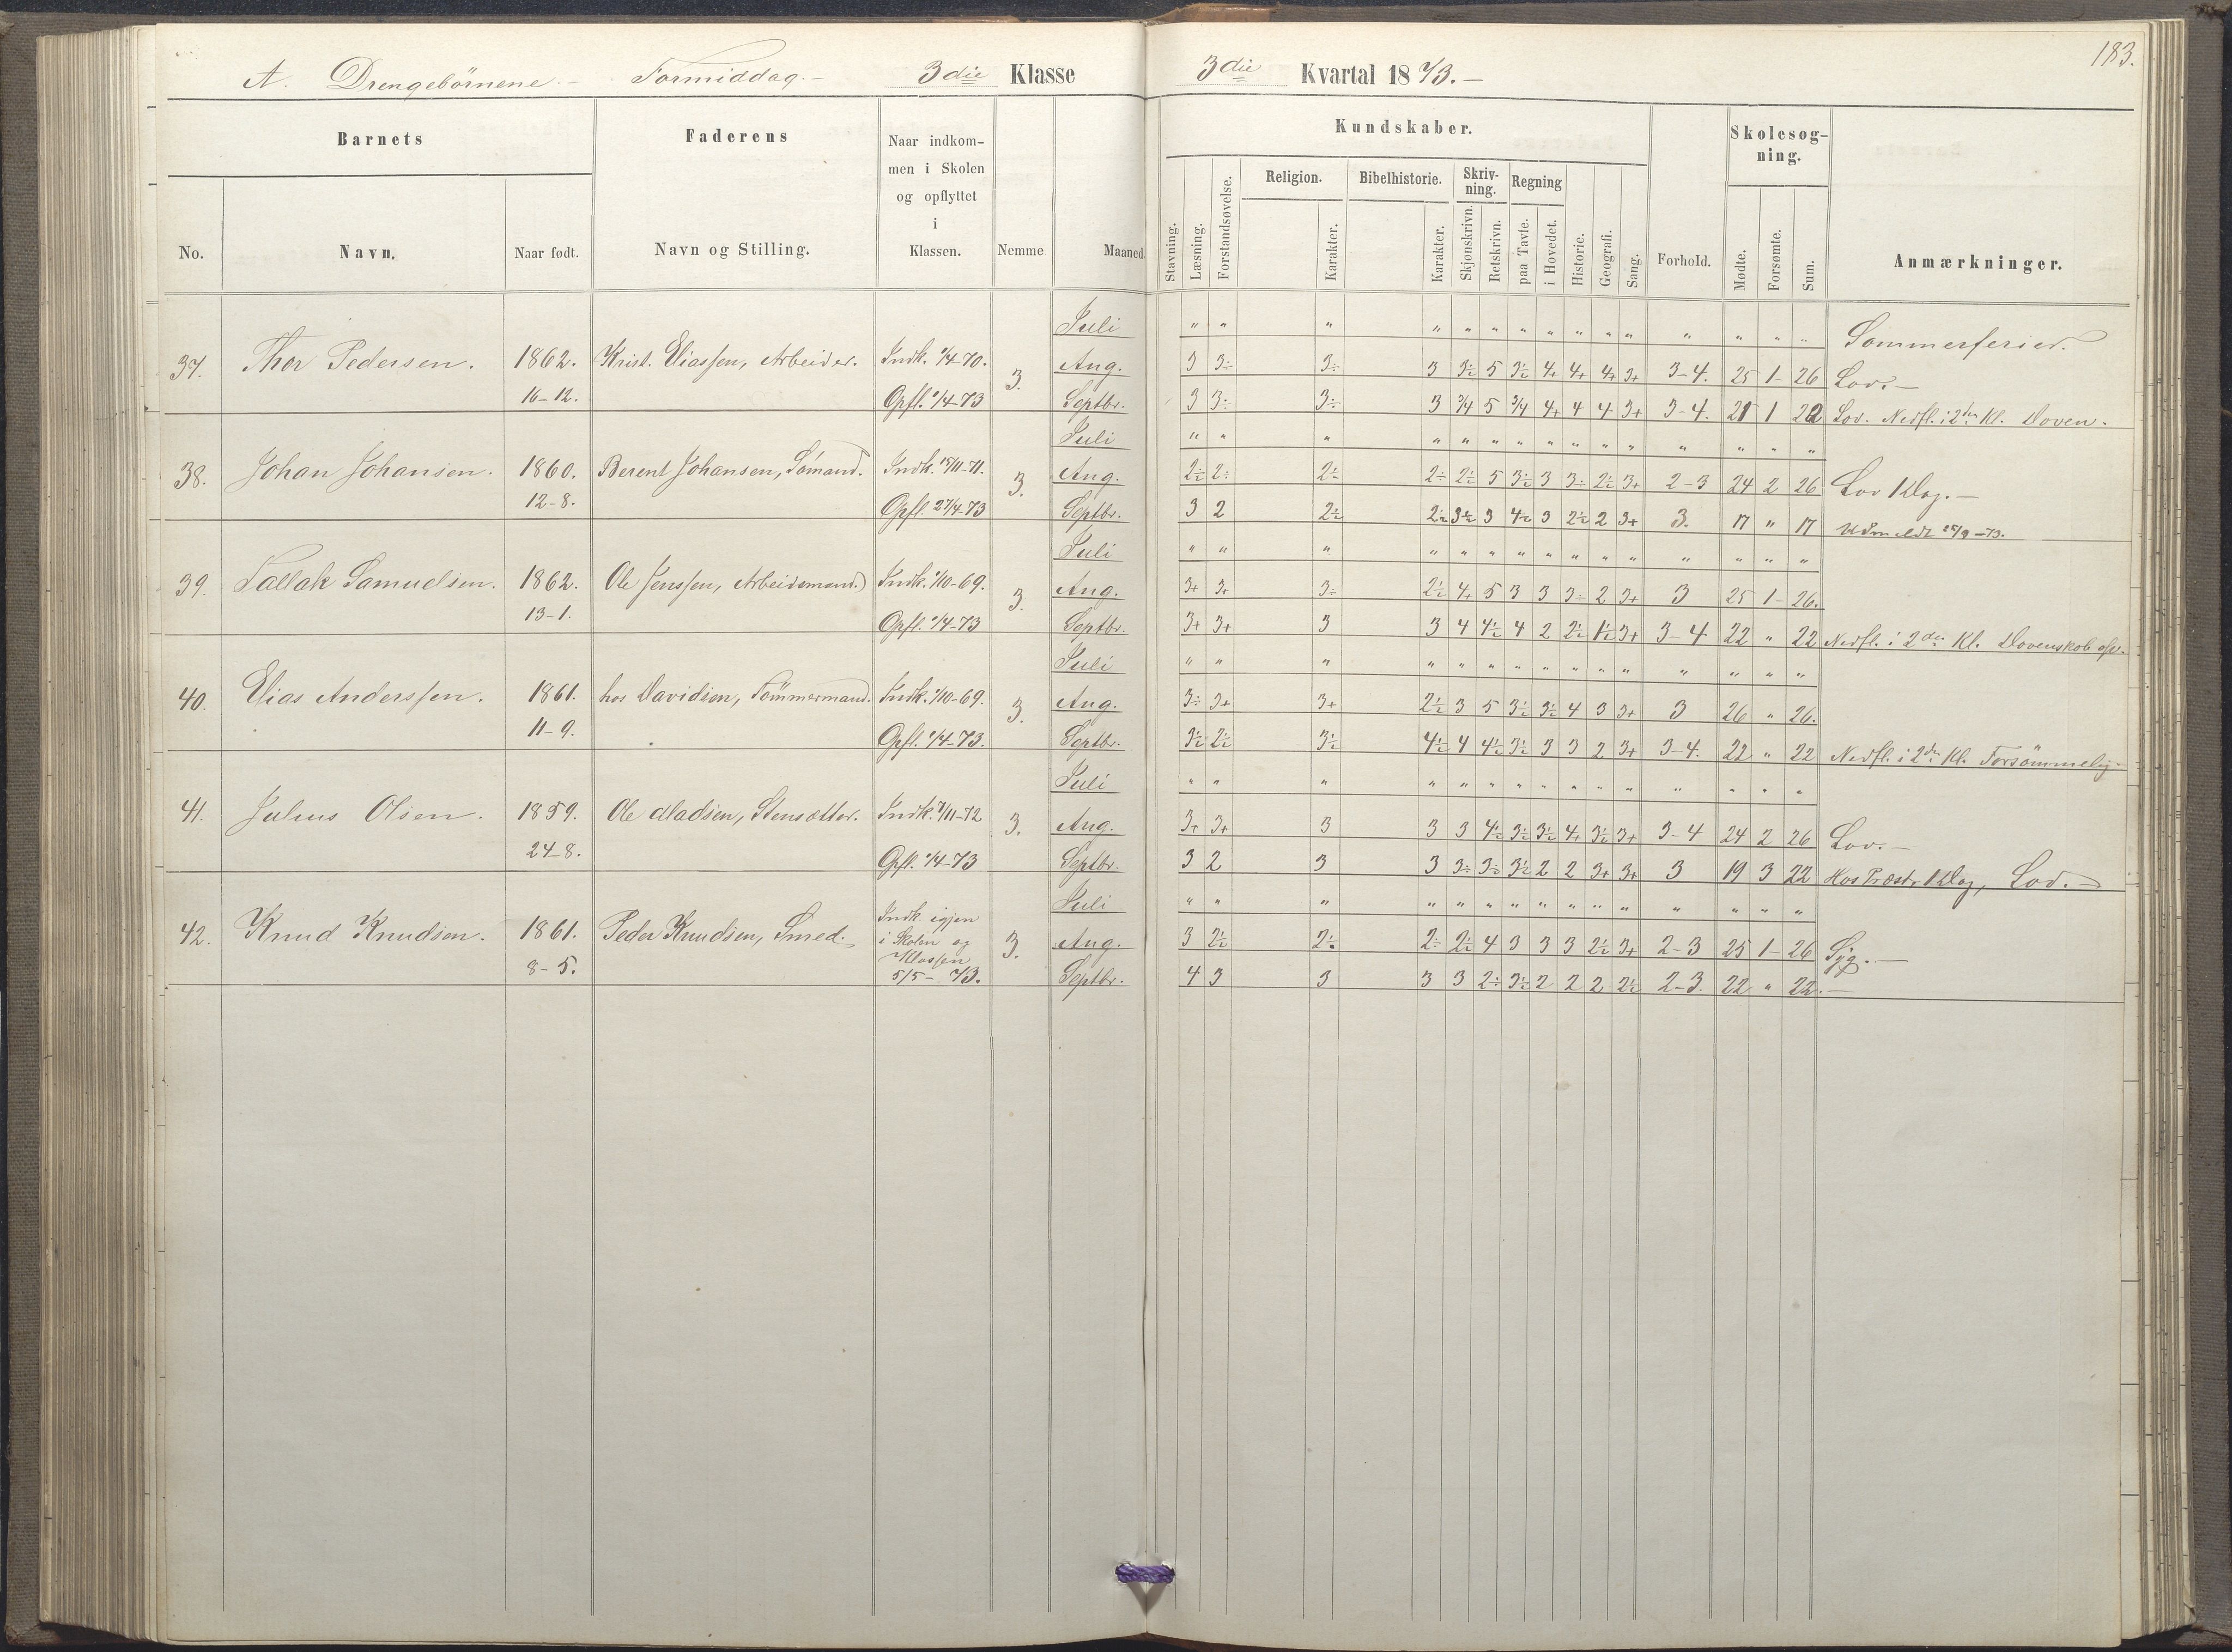 183.
A. Drengebörnene.- Formiddag.- 3die Klasse 3die Kvartal 1873.-
Barnets Faderens Naar indkom- Kundskaber. Skolesøg-
men i Skolen ning.
og opflyttet Religion. Bibelhistorie. Skriv- Regning
i ning.
No. Navn. Naar født. Navn og Stilling. Klassen. Nemme Maaned. Stavning. Læsning. Forstandsøvelse. Karakter. Karakter. Skjønskrivn. Retskrivn. paa Tavle. i Hovedet. Historie. Geografi. Sang. Forhold. Mødte. Forsømte. Sum. Anmærkninger.
Juli " " " " " " " " " " " " " " " Sommerferier.
37. Thor Pedersen. 1862. Krist. Eliassen, Arbeider. Indk. 1/4-70. 3. Aug. 3 3÷ 3÷ 3 3½ 5 3½ 4+ 4+ 4+ 3+ 3-4. 25 1 26 Lov.-
16-12. Opfl. 1/4-73 Septbr. 3 3÷ 3÷ 3 3/4 5 3/4 4+ 4 4 3+ 3-4. 21 1 22 Lov. Nedfl. i 2den Kl. Doven.
Juli " " " " " " " " " " " " " " "
38. Johan Johansen. 1860. Berent Johansen, Sömand. Indk. 15/11-71. 3. Aug. 2½ 2÷ 2÷ 2÷ 2½ 5 3½ 3 3÷ 2½ 3+ 2-3 24 2 26 Lov 1 Dag.-
12-8. Opfl. 27/4-73 Septbr. 3 2 2½ 2½ 3½ 3 4½ 3 2½ 2 3+ 3. 17 " 17 Udmeldt 25/9-73.
Juli " " " " " " " " " " " " " " "
39. Tallak Samuelsen. 1862. Ole Jenssen, Arbeidsmand. Indk. 1/10-69. 3. Aug. 3+ 3+ 3÷ 2½ 4+ 5 3 3 3÷ 2 3+ 3 25 1 26.
13-1. Opfl. 1/4-73 Septbr. 3+ 3+ 3 3 4 4½ 4 2 2½ 1½ 3+ 3-4 22 " 22 Nedfl. i 2den Kl. Dovenskab
Juli " " " " " " " " " " " " " " "
40. Elias Anderssen. 1861. hos Davidsen, Tömmermand. Indk. 1/10-69. 3. Aug. 3÷ 3+ 3+ 2½ 3 5 3½ 3½ 4 3 3+ 3 26 " 26.
11-9. Opfl. 1/4-73. Septbr. 3½ 2½ 3½ 4½ 4 4½ 3½ 3 3 2 3+ 3-4. 22 " 22 Nedfl. i 2den Kl. Forsömmelig
Juli " " " " " " " " " " " " " " "
41. Julius Olsen. 1859. Ole Madsen, Stensætter. Indk. 4/11-72 3. Aug. 3+ 3+ 3 3 3 4½ 3½ 3½ 4+ 3½ 3+ 3-4 24 2 26 Lov.-
24-8. Opfl. 1/4-73 Septbr. 3 2 3 3 3÷ 3½ 3½ 2 2 3+ 3+ 3 19 3 22 Hos Præst. 1 Dag, Lov.-
Juli " " " " " " " " " " " " " " "
42. Knud Knudsen. 1861. Peder Knudsen, Smed. Indk. igjen
i Skolen og 3. Aug. 3 2½ 2½ 2÷ 2½ 4 3 3 3 2½ 3+ 2-3 25 1 26 Syg.-
8-5. Klassen
5/5-73. Septbr. 4 3 3 3 3 2÷ 3½ 2 2 2 2½ 2-3. 22 " 22.-